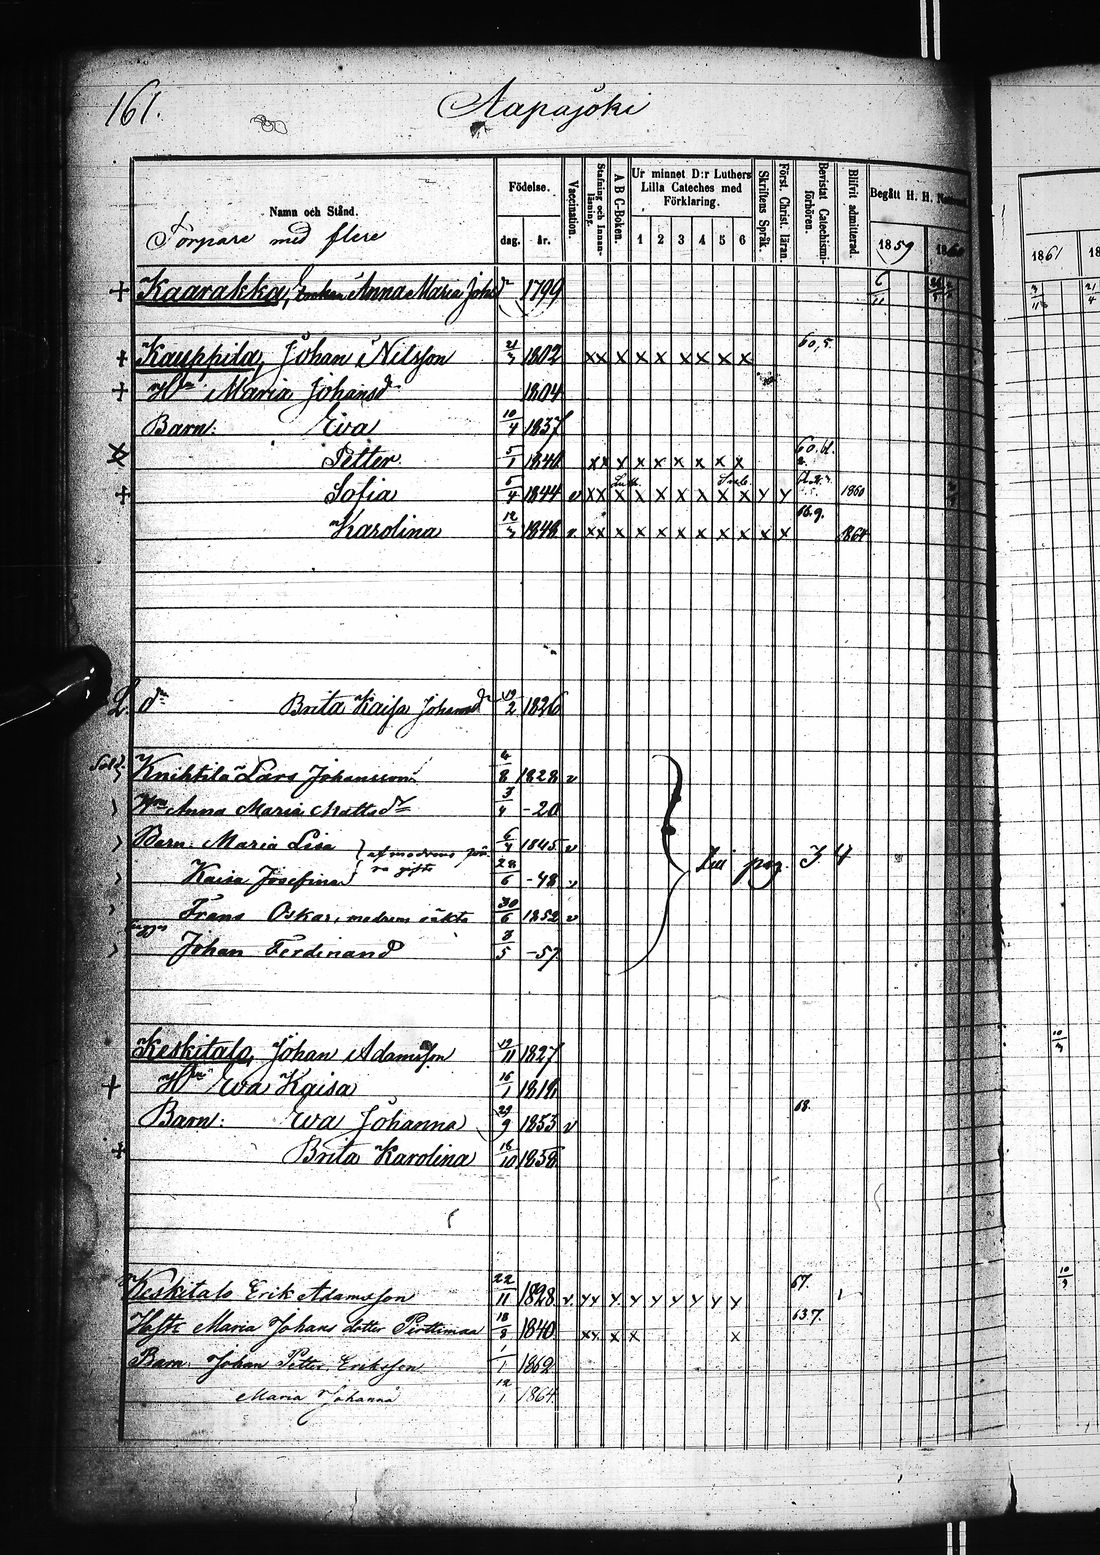 161. Aapajoki
Namn och Stånd. Födelse. Vaccination. Stafning och Innanläsning. A B C-Boken. Ur minnet D:r Luthers Lilla Cateches med Förklaring. Skriftens Språk. Först. Christ. läran. Bevistat Catechismiförhören. Blifvit admitterad. Begått H. H.
Torpare med flere dag. år. 1 2 3 4 5 6 1859 1861
+ Kaarakka, Enkan Anna Maria Johsd 1799 6/11
+ Kauppila, Johan Nilsson 21/3 1802 x x x x x x x x x 60,5.
+ Hn Maria Johansd 1804
Barn: Eva 10/4 1837
Petter 5/1 1840 x x x x x x x x x 60. 61.
+ Sofia 5/4 1844 v x x x x x x x x x y y 1860
Karolina 12/3 1848 v x x x x x x x x x x x 1864
Brita Kaisa Johansdr 19/2 1826
Knihtilä Lars Johansson 4/8 1828 v
Hn Anna Maria Mattsdr 3/4 -20
Barn: Maria Lisa 6/4 1845 v
af modrens förra gifte
Kaisa Josefina 28/6 -48 v
Frans Oskar, modrens oäkta 30/6 1852 v
Johan Ferdinand 3/5 -57
pag. 34
Keskitalo, Johan Adamsson 19/11 1827 10/3
+ Hn Eva Kaisa 16/1 1818
Barn: Eva Johanna 29/9 1853 v 68.
+ Brita Karolina 18/10 1858
Keskitalo Erik Adamsson 22/11 1828 v y y y y y y y y y 67. 10/3
Maria Johans dotter Pirttimaa 18/8 1840 x x x x x 63.7.
Barn: Johan Petter Eriksson 1/1 1862
Maria Johanna 12/1 1864